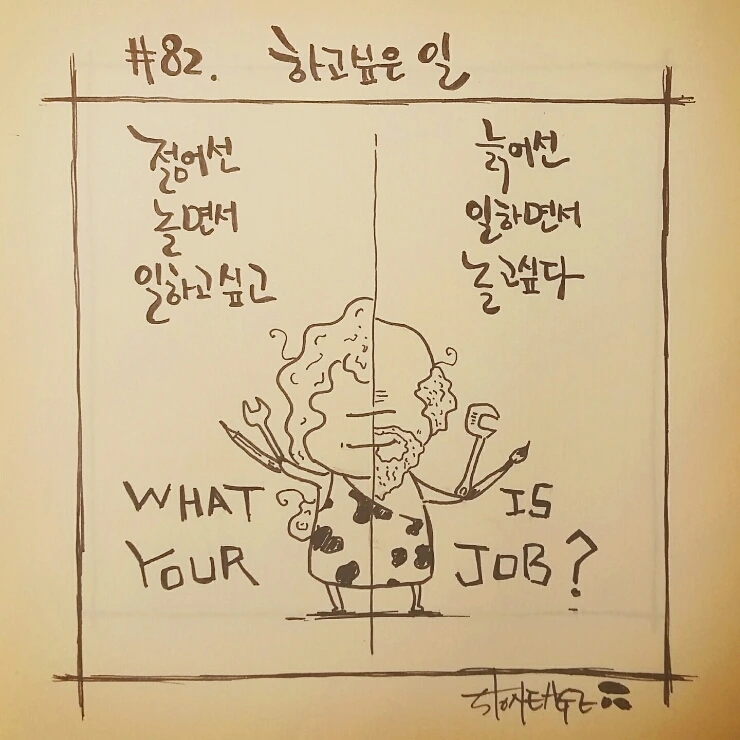 #82. 하고싶은 일
젊어선
놀면서
일하고싶고
늙어선
일하면서
놀고싶다
WHAT IS
YOUR JOB?
STONEAGE